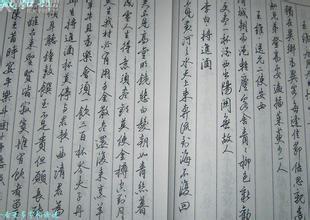 獨在異鄉為異客每逢佳節倍思親遙
登高處遍插茱萸少一人
王維 送元二使安西
朝雨浥輕塵客舍青青柳色新勸
更盡一杯酒西出陽關無故人
李白 將進酒
君不見黃河之水天上來奔流到海不復回
君不見高堂明鏡悲白髮朝如青絲暮
成雪人生得意須盡歡莫使金樽空對月
天生我材必有用千金散盡還復來烹羊
宰牛且為樂會須一飲三百杯岑夫子丹
將進酒杯莫停與君歌一曲請君為
聽鐘鼓饌玉不足貴但願長
古來聖賢皆寂寞惟有飲者留
陳王昔時宴平樂斗酒十千